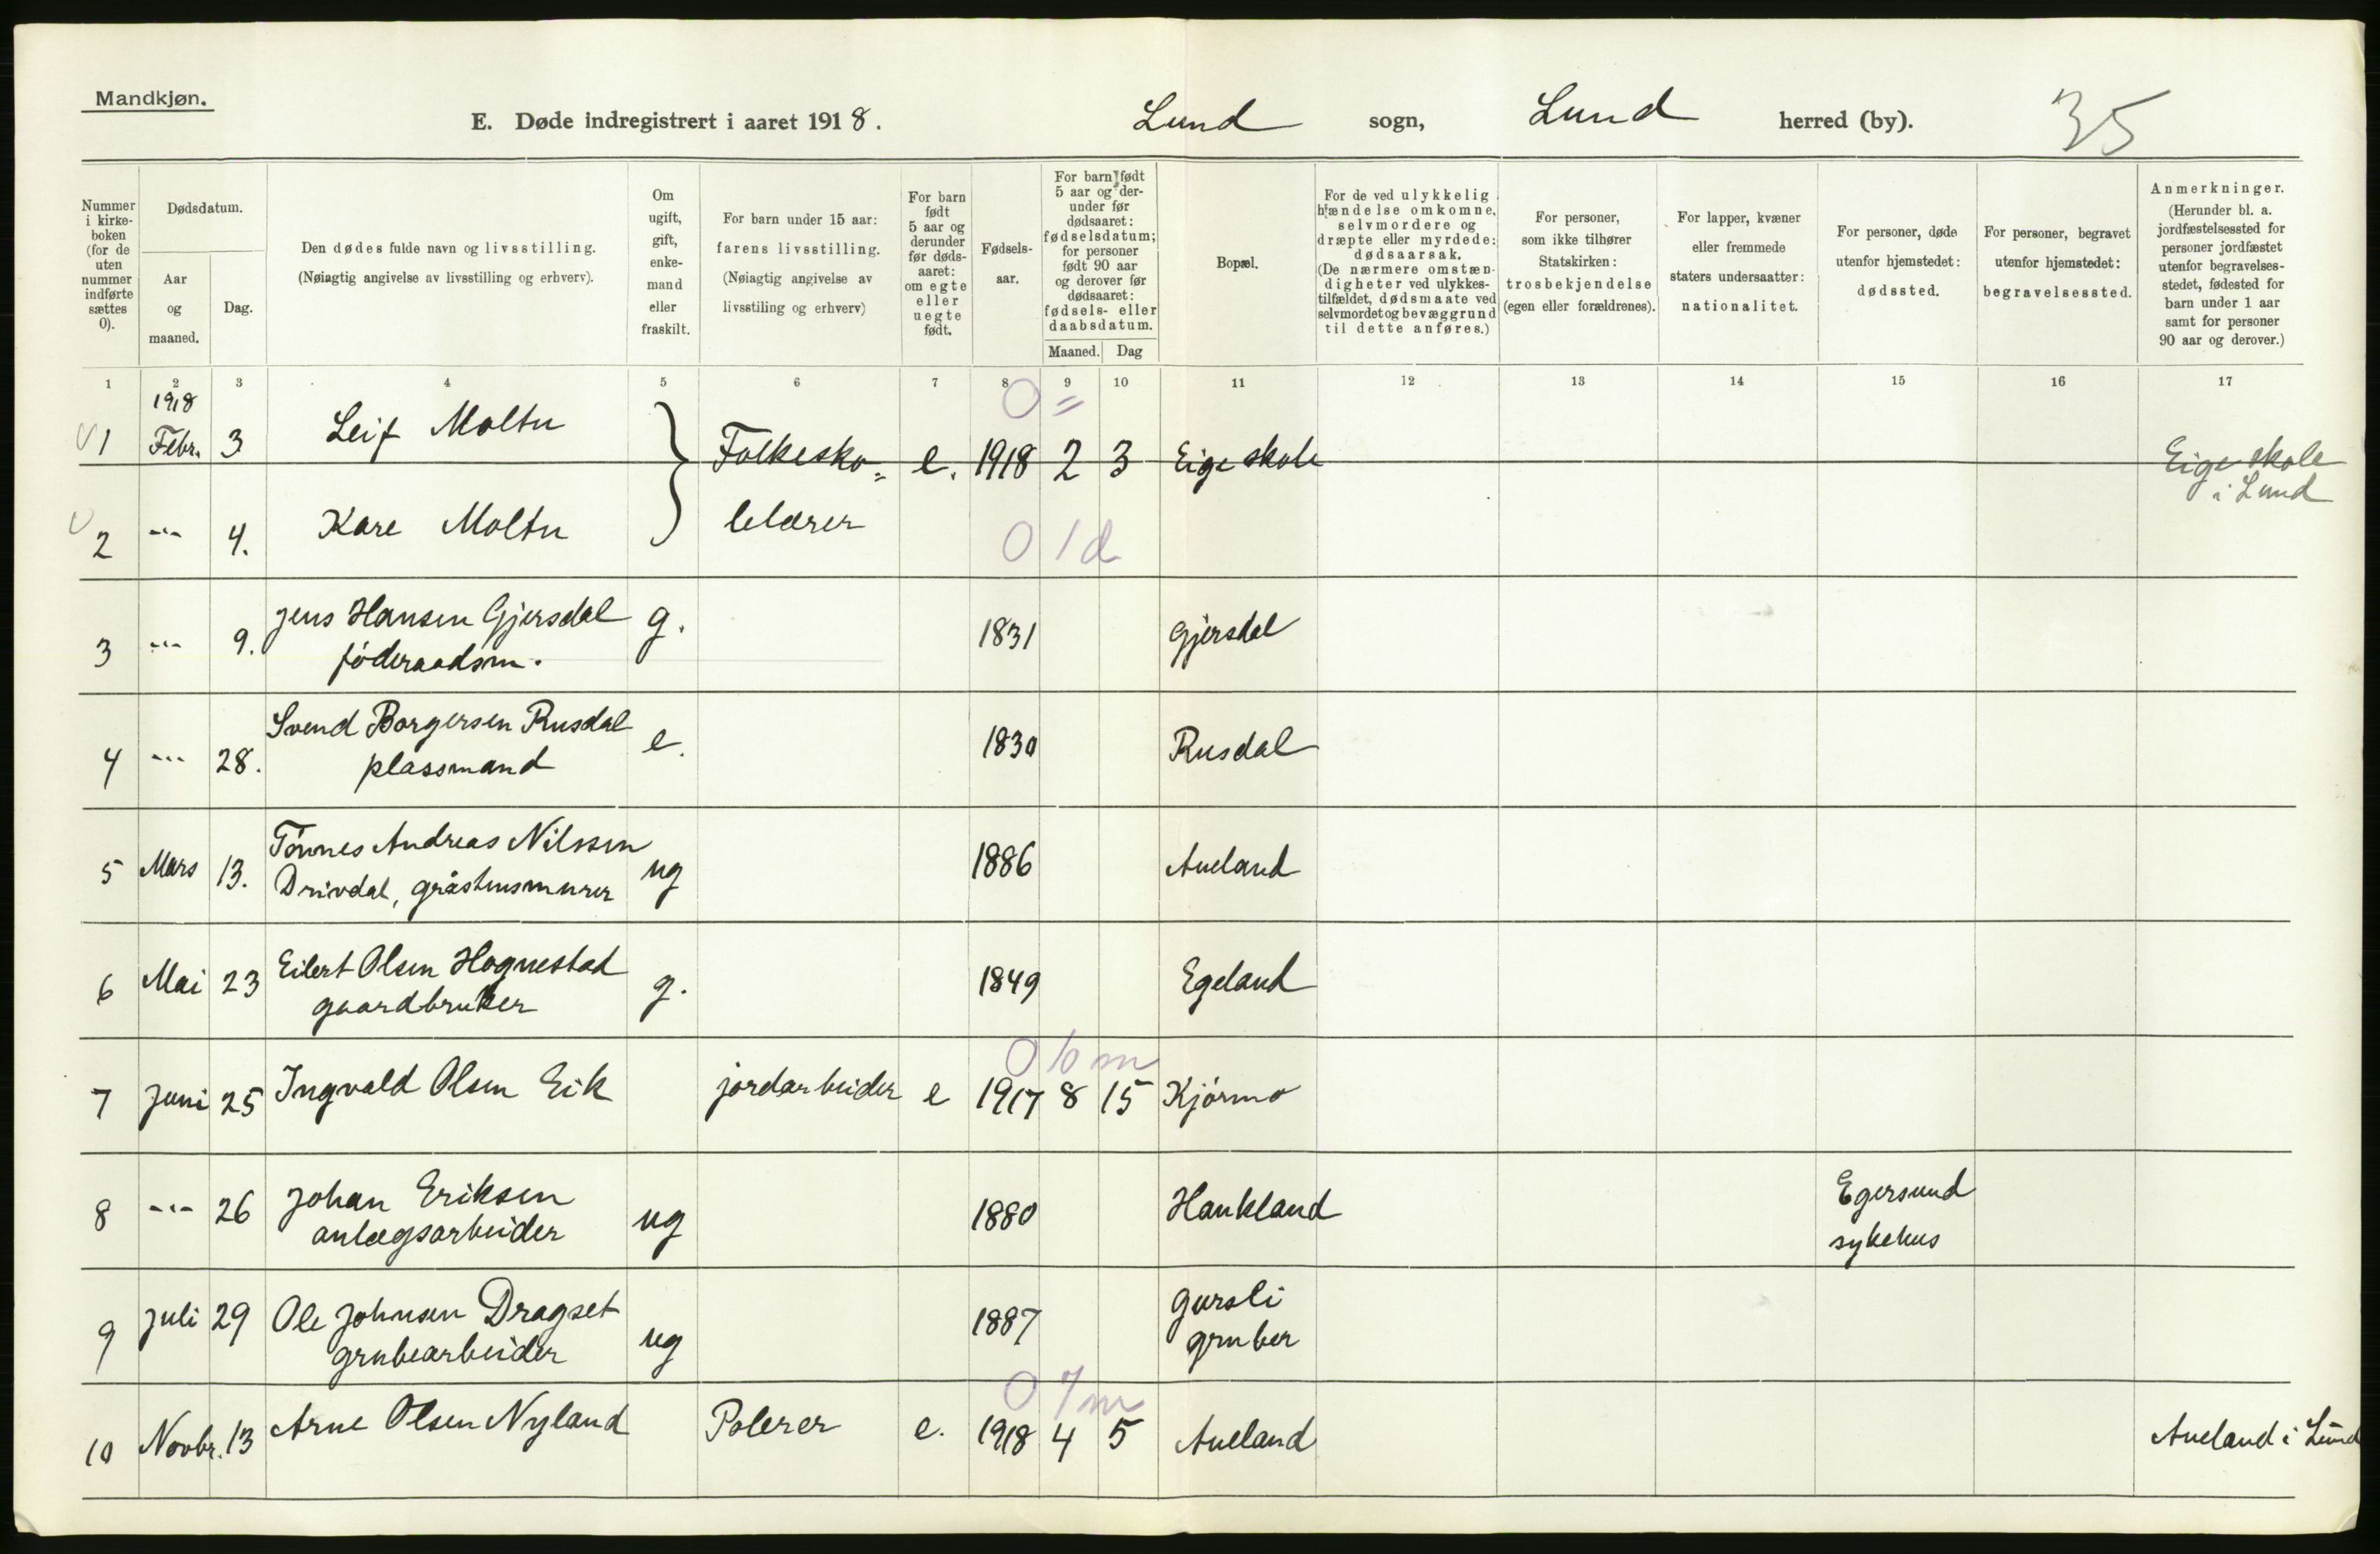 Mandkjøn.
E. Døde indregistrert i aaret 1918.
Lund sogn, Lund herred (by).
35
Nummer i kirke- boken (for de uten nummer indførte sættes 0).
Dødsdatum.
Aar og maaned.
Dag.
Den dødes fulde navn og livsstilling.
(Nøiagtig angivelse av livsstilling og erhverv).
Om ugift, gift, enke- mand eller fraskilt.
For barn under 15 aar: farens livsstilling.
(Nøiagtig angivelse av livsstiling og erhverv)
For barn født 5 aar og derunder før døds- aaret: om egte eller uegte født.
Fødsels- aar.
For barn født 5 aar og der- under før dødsaaret: fødselsdatum; for personer født 90 aar og derover før dødsaaret: fødsels- eller daabsdatum.
Maaned. Dag
Bopæl.
For de ved ulykkelig hændelse omkomne, selvmordere og dræpte eller myrdede: dødsaarsak.
(De nærmere omstæn- digheter ved ulykkes- tilfældet, dødsmaate ved selvmordet og bevæggrund til dette anføres.)
For personer, som ikke tilhører Statskirken: trosbekjendelse (egen eller forældrenes).
For lapper, kvæner eller fremmede staters undersaatter: nationalitet.
For personer, døde utenfor hjemstedet: dødssted.
For personer, begravet utenfor hjemstedet: begravelsessted.
Anmerkninger.
(Herunder bl. a. jordfæstelsessted for personer jordfæstet utenfor begravelses- stedet, fødested for barn under 1 aar samt for personer 90 aar og derover.)
1 2 3 4 5 6 7 8 9 10 11 12 13 14 15 16 17
1918
0 =
1 Febr. 3 Leif Moltu } Folkesko= e. 1918 2 3 Eige skole Eige skole
i Lund
2 -"- 4. Kare Moltu lelærer 0 1 d
3 -"- 9. Jens Hansen Gjersdal g. 1831 Gjersdal
föderaadsm.
4 -"- 28. Svend Borgersen Rusdal e. 1830 Rusdal
plassmand
5 Mars 13. Tönnes Andreas Nilssen ug 1886 Aueland
Drivdal, gråstensmurer
6 Mai 23 Eilert Olsen Hognestad g. 1849 Egeland
gaardbruker
0 10 m
7 Juni 25 Ingvald Olsen Eik jordarbeider e 1917 8 15 Kjörmo
8 -"- 26 Johan Eriksen ug 1880 Haukland Egersund
anlægsarbeider sykehus
9 Juli 29 Ole Johnsen Dragset ug 1887 Gursli
grubearbeider gruber
0 7 m
10 Novbr. 13 Arne Olsen Nyland Polerer e. 1918 4 5 Aueland Aueland i Lund